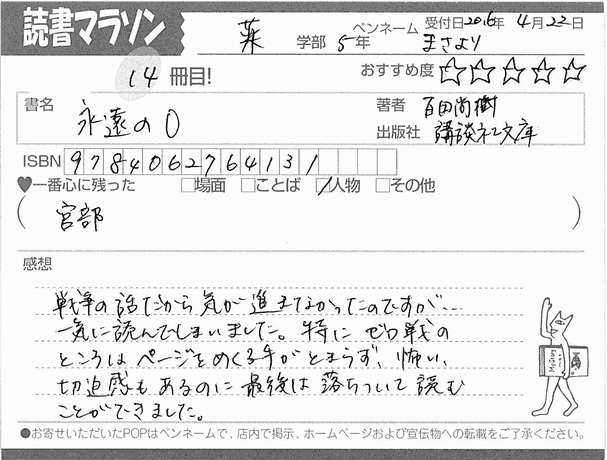 読書マラソン
薬 学部 5年
ペンネーム まさより
受付日2016年 4月22日
14 冊目!
おすすめ度 ☆☆☆☆☆
書名 永遠の0
著者 百田尚樹
出版社 講談社文庫
ISBN 9784062764131
♥一番心に残った □場面 □ことば ☑人物 □その他
(宮部)
感想
戦争の話だから気が進まなかったのですが…
一気に読んでしまいました。特にゼロ戦の
ところはページをめくる手がとまらず、怖い、
切迫感もあるのに最後は落ちついて読む
ことができました。
●お寄せいただいたPOPはペンネームで、店内で掲示、ホームページおよび宣伝物への転載をご了承ください。